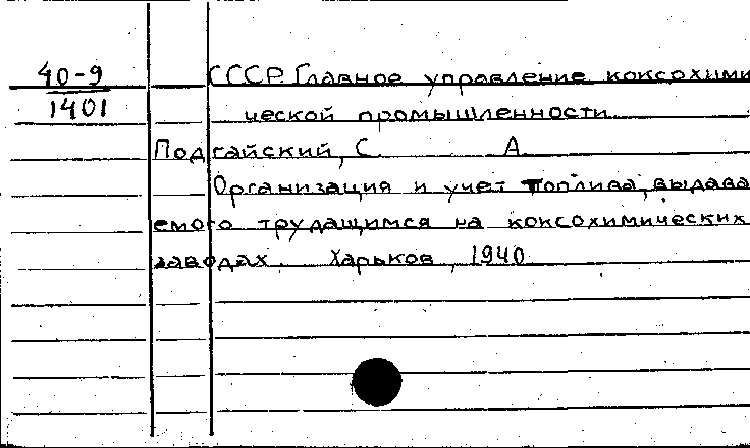 40-9
1401
СССР. Главное управление коксохими
ческой промышленности.
Подгайский, С. А.
Организация и учет топлива, выдава
емого трудащимся на коксохимических
заводах. Харьков, 1940